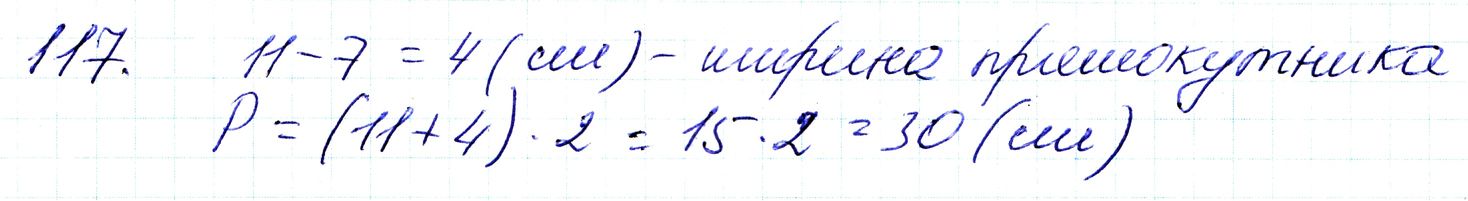 117. 11 - 7 = 4 (см) - ширина прямокутника
P = (11 + 4) · 2 = 15 · 2 = 30 (см)